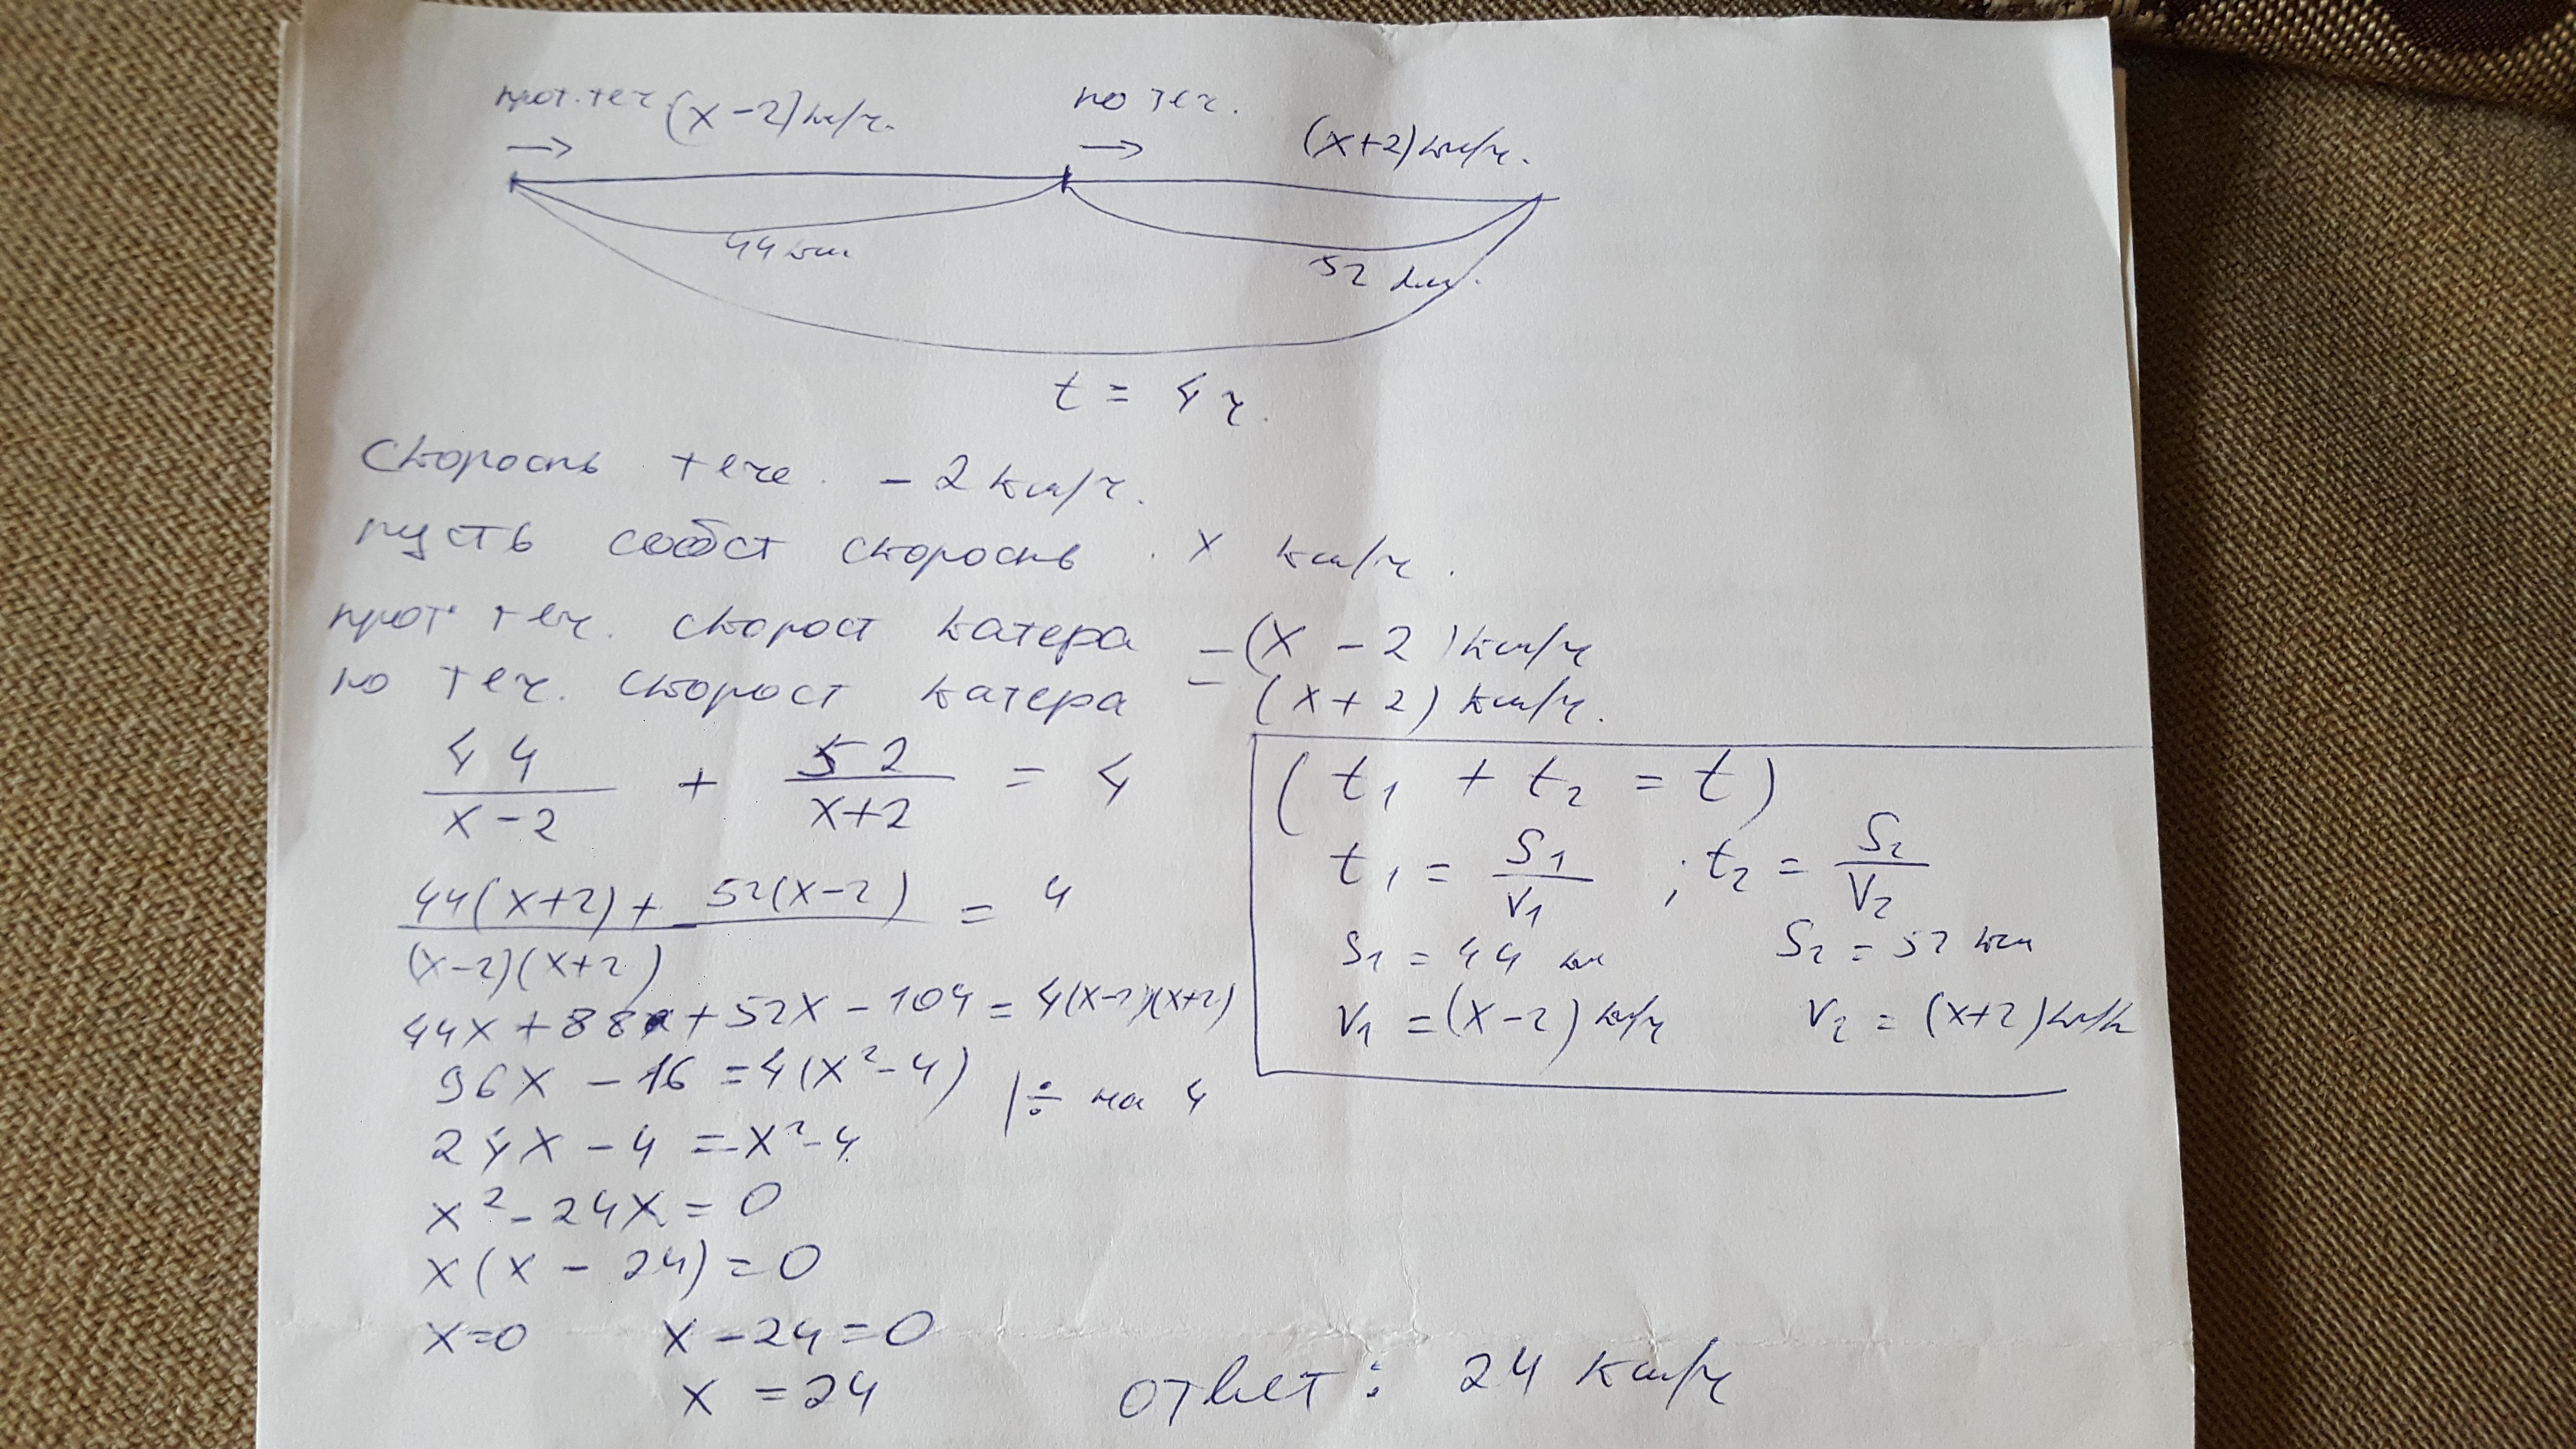 прот. теч (x-2) км/ч.
по теч.
(x+2) км/ч.
44 км
52 км.
t = 4 ч.
Скорость тече. - 2 км/ч.
пусть собст скорость . x км/ч.
прот теч. скорост катера = (x - 2) км/ч
по теч. скорост катера = (x+2) км/ч.
44/(x-2) + 52/(x+2) = 4
(44(x+2) + 52(x-2))/((x-2)(x+2)) = 4
44x + 88 + 52x - 104 = 4(x-2)(x+2)
96x - 16 = 4(x²-4) |÷ на 4
24x - 4 = x²-4
x² - 24x = 0
x(x - 24) = 0
x=0 x - 24 = 0
x = 24
(t₁ + t₂ = t)
t₁ = S₁/V₁ ; t₂ = S₂/V₂
S₁ = 44 км S₂ = 52 км
V₁ = (x-2) км/ч V₂ = (x+2) км/ч
ответ: 24 км/ч